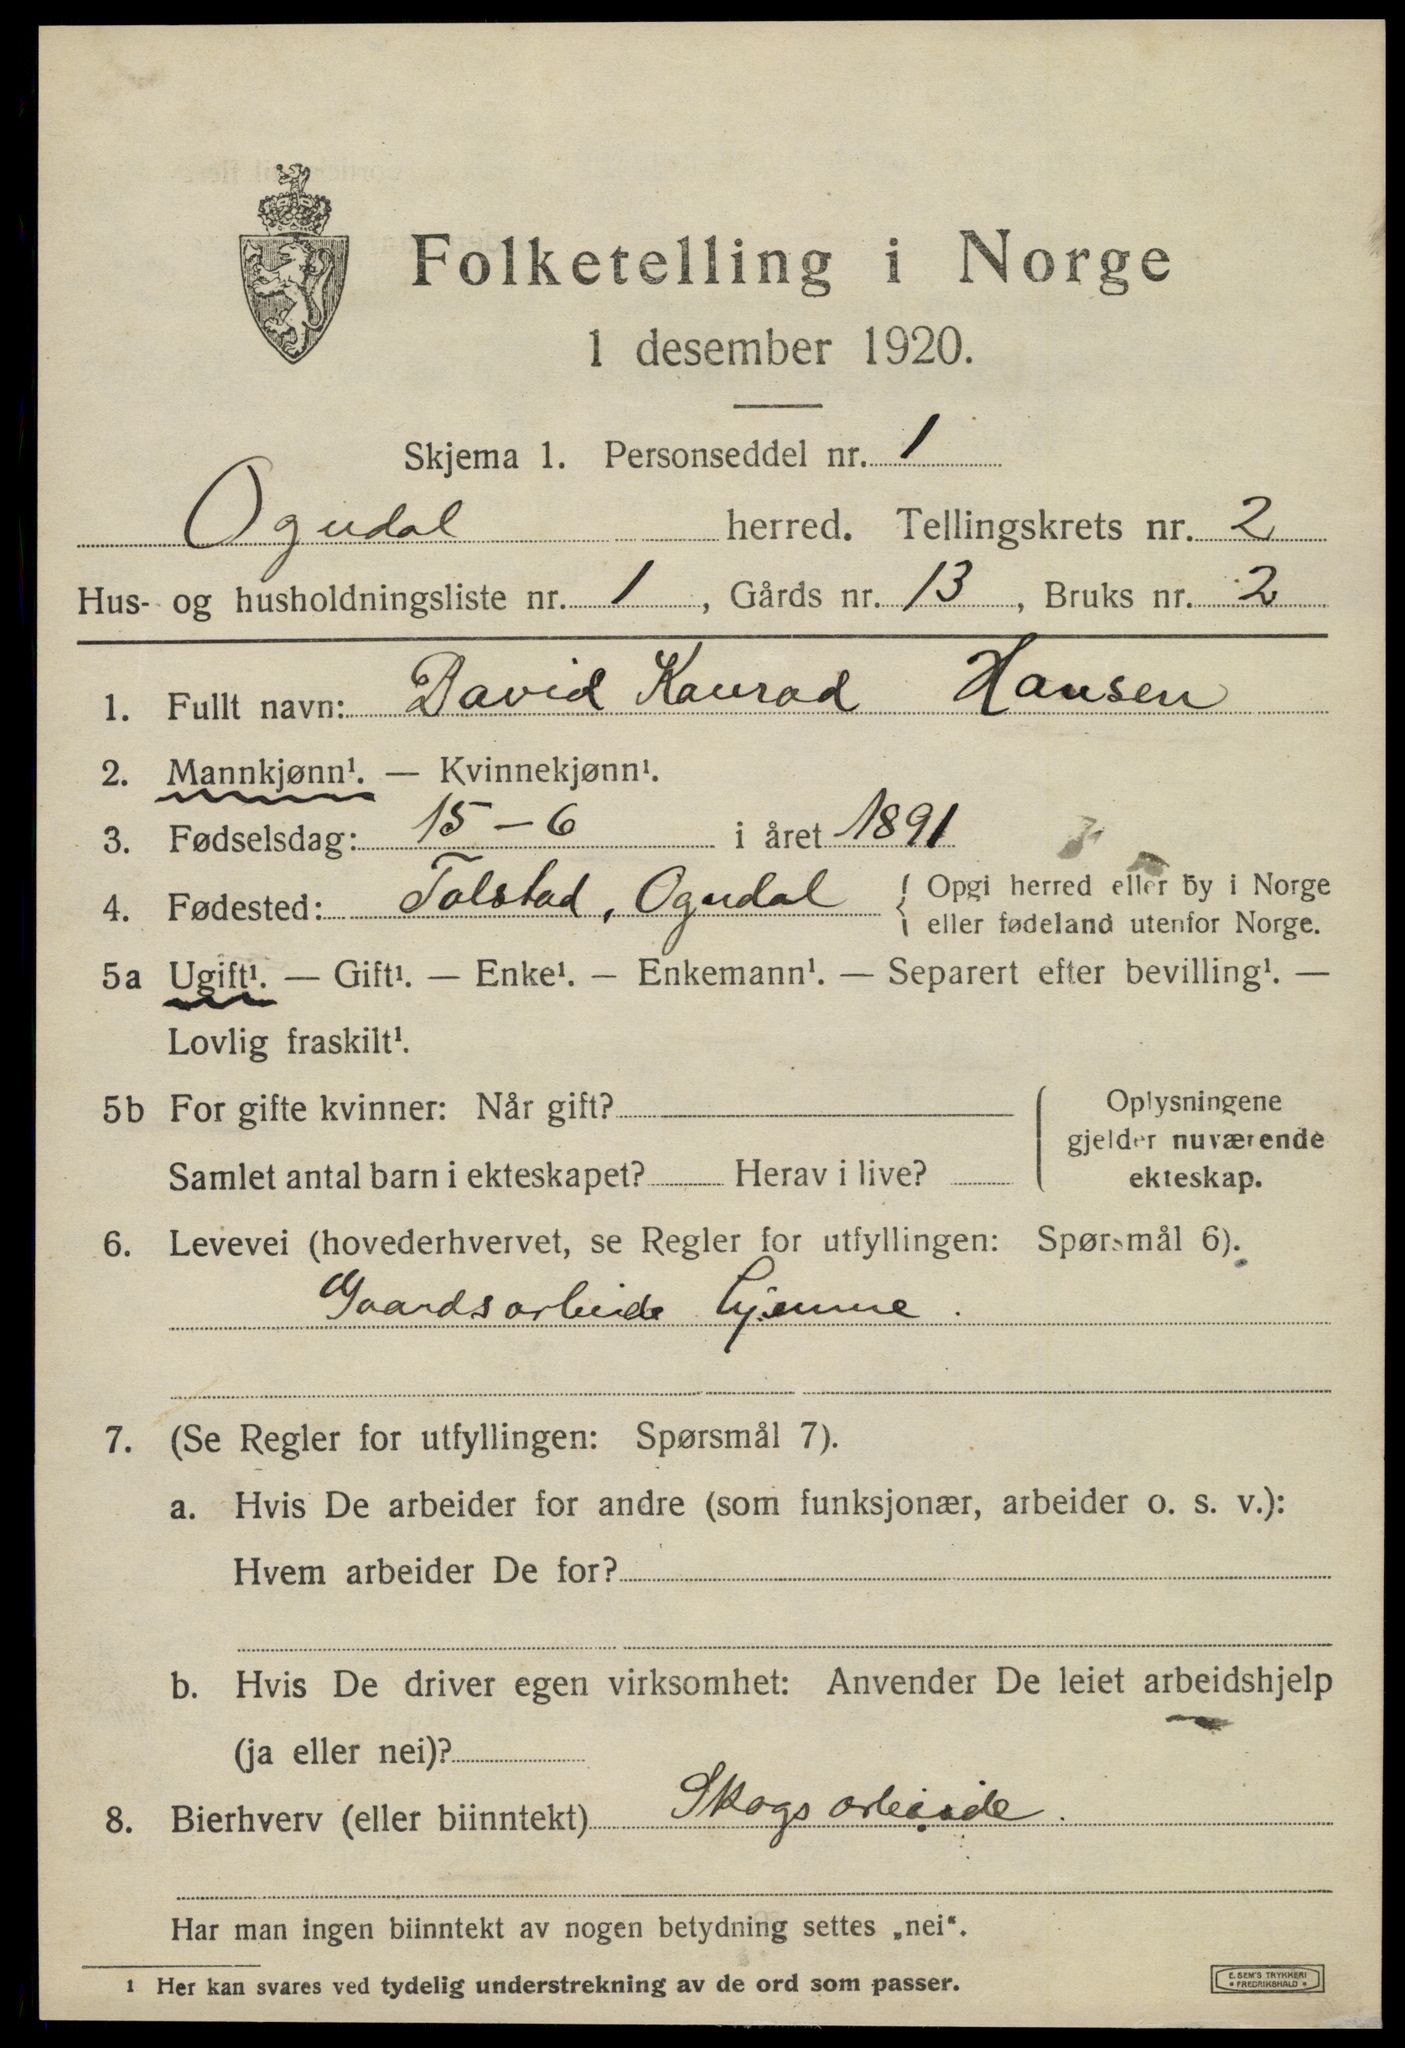 Folketelling i Norge
1 desember 1920.
Skjema 1. Personseddel nr. 1
Ogndal herred. Tellingskrets nr. 2
Hus- og husholdningsliste nr. 1, Gårds nr. 13, Bruks nr. 2
1. Fullt navn: David Konrad Hansen
2. Mannkjønn¹. — Kvinnekjønn¹.
3. Fødselsdag: 15 - 6 i året 1891
4. Fødested: Tolstad, Ogndal { Opgi herred eller by i Norge
eller fødeland utenfor Norge.
5a Ugift¹. — Gift¹. — Enke¹. — Enkemann¹. — Separert efter bevilling¹. —
Lovlig fraskilt¹.
5b For gifte kvinner: Når gift?
Samlet antal barn i ekteskapet? Herav i live?
Oplysningene
gjelder nuværende
ekteskap.
6. Levevei (hovederhvervet, se Regler for utfyllingen: Spørsmål 6).
Gaardsarbeide hjemme.
7. (Se Regler for utfyllingen: Spørsmål 7).
a. Hvis De arbeider for andre (som funksjonær, arbeider o. s. v.):
Hvem arbeider De for?
b. Hvis De driver egen virksomhet: Anvender De leiet arbeidshjelp
(ja eller nei)?
8. Bierhverv (eller biinntekt) Skogsarbeide.
Har man ingen biinntekt av nogen betydning settes „nei“.
1 Her kan svares ved tydelig understrekning av de ord som passer.
E. SEM'S TRYKKERI
• FREDRIKSHALD •